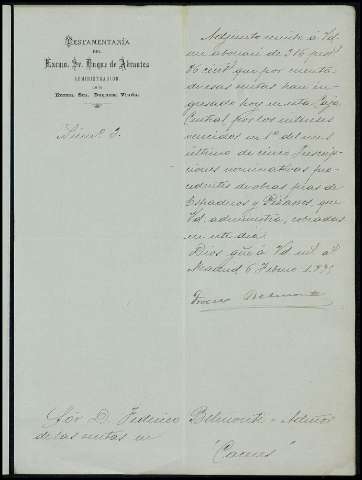 TESTAMENTARÍA
DEL
Excmo. Sr. Duque de Abrantes
ADMINISTRACION
DE LA
Excma. Sra. Duquesa Viuda.
Núm.º 2.
Adjunto remito á Vd.
un abonaré de 316 ptas
que por cuenta
de esas rentas han in-
gresado hoy en esta Caja
Central por los intereses
vencidos en 1.º del mes
último de cinco Inscrip-
ciones nominativas pro-
cedentes de obras pias de
Espaderos y Pizarros, que
Vd. administra, cobradas
en este dia.
Dios gue á Vd m.s a.s
Madrid 6 Febrero
Belmonte
Sor D. Federico Belmonte - Admor
de las rentas en
"Caceres"